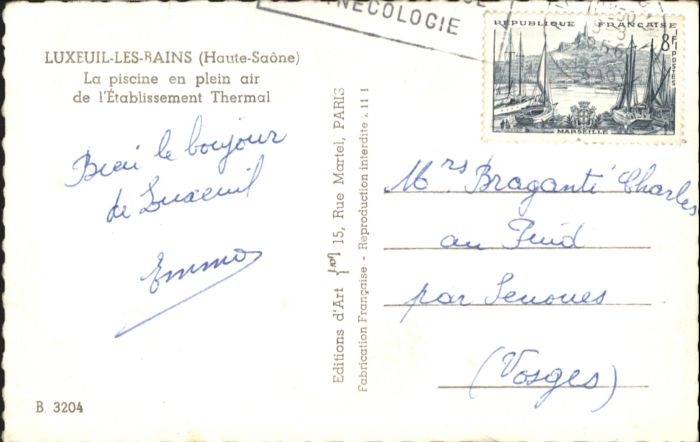 GYNECOLOGIE
RÉPUBLIQUE FRANÇAISE
8F
POSTES
MARSEILLE
LUXEUIL-LES-BAINS (Haute-Saône)
La piscine en plein air
de l'Établissement Thermal
le bonjour
de Luxeuil
Emma
B. 3204
Editions d'Art YVON 15, Rue Martel, PARIS
Fabrication Française - Reproduction interdite
Mrs Braganti Charles
au Puid
par Senones
(Vosges)